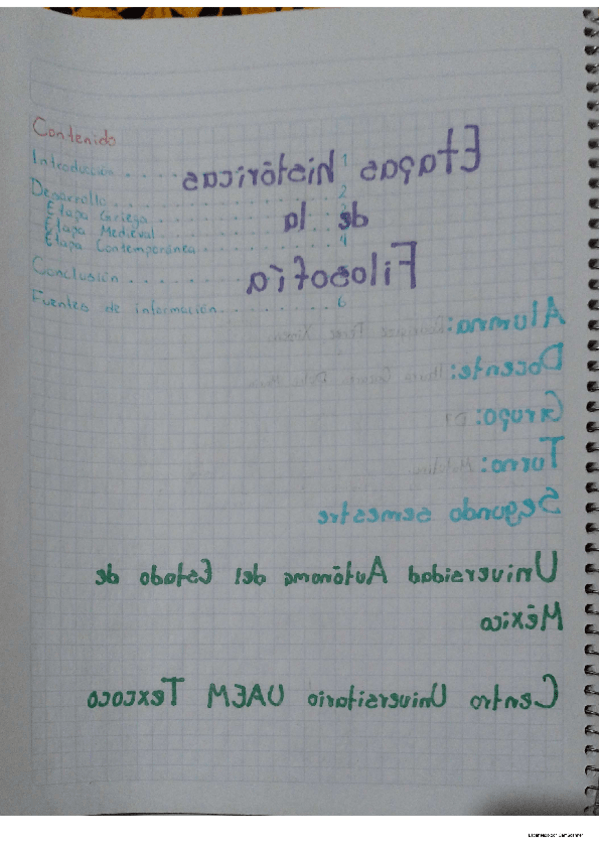 Contenido
Introducción.......... 1
Desarrollo.......... 2
Etapa Griega.......... 2
Etapa Medieval.......... 3
Etapa Contemporánea.......... 4
Conclusión..........
Fuentes de información.......... 6
Etapas históricas
de la
Filosofía
Alumna:
Docente:
Grupo:
Turno:
Segundo semestre
Universidad Autónoma del Estado de
México
Centro Universitario UAEM Texcoco